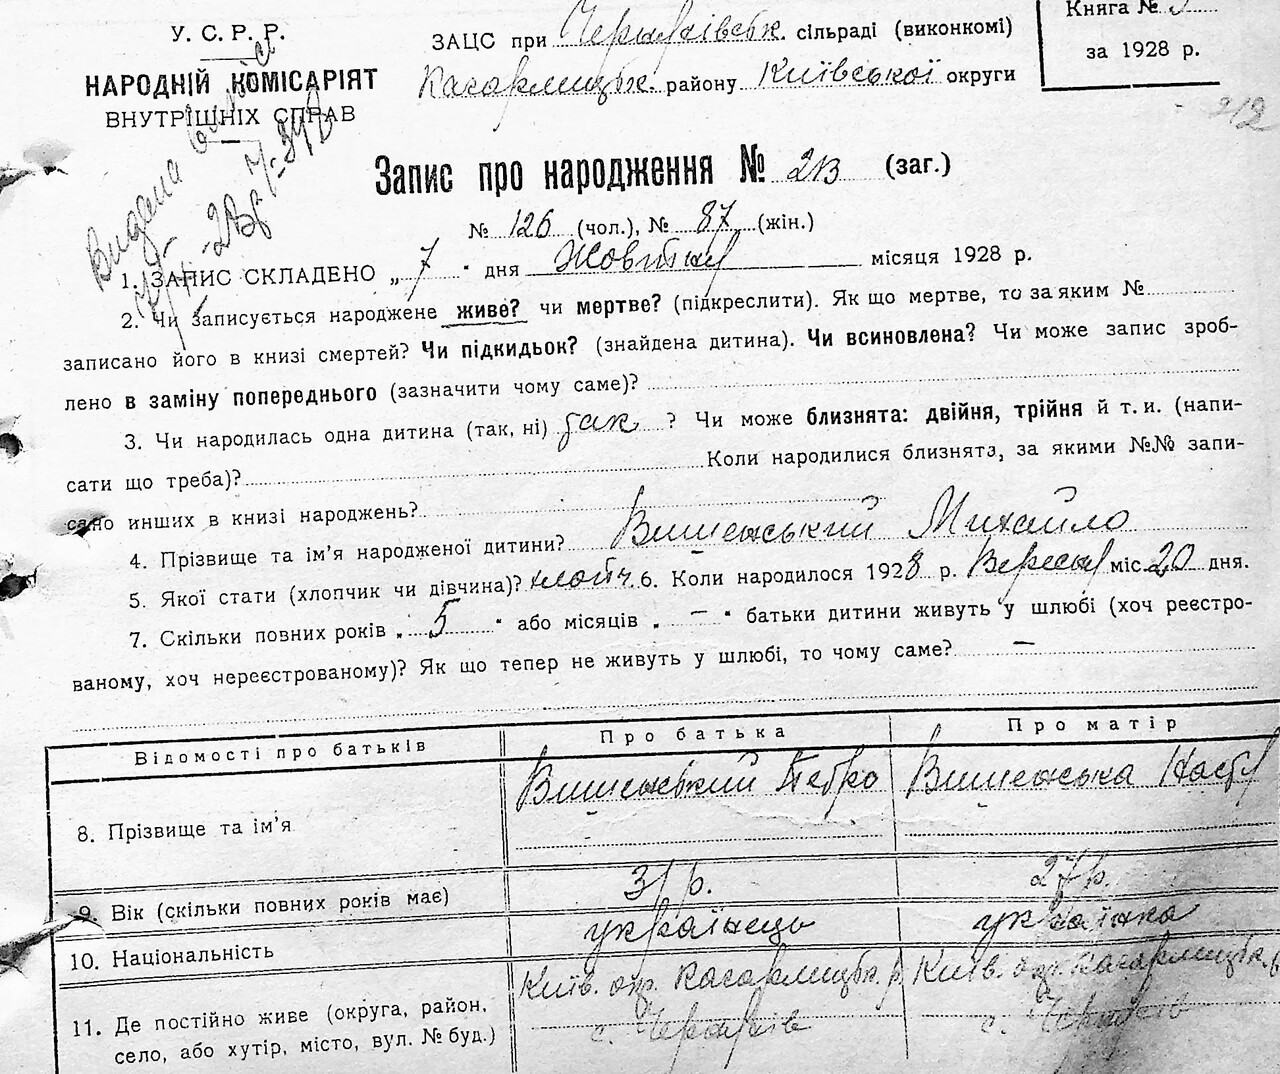 У. С. Р. Р.
НАРОДНІЙ КОМІСАРІЯТ
ВНУТРІШНІХ СПРАВ
ЗАЦС при сільраді (виконкомі)
Кагарлицьк. району Київської округи
Книга №
за 1928 р.
212
Видена
Запис про народження № 213 (заг.)
№ 126 (чол.), № 87 (жін.)
1. ЗАПИС СКЛАДЕНО „ 7 " дня Жовтня місяця 1928 р.
2. Чи записується народжене живе? чи мертве? (підкреслити). Як що мертве, то за яким №
записано його в книзі смертей? Чи підкидьок? (знайдена дитина). Чи всиновлена? Чи може запис зроб-
лено в заміну попереднього (зазначити чому саме)?
3. Чи народилась одна дитина (так, ні) так ? Чи може близнята: двійня, трійня й т. и. (напи-
сати що треба)? Коли народилися близнята, за якими №№ запи-
сано инших в книзі народжень?
4. Прізвище та ім'я народженої дитини? Вишенський Михайло
5. Якої стати (хлопчик чи дівчина)? хлопч. 6. Коли народилося 1928 р. Вересня міс. 20 дня.
7. Скільки повних років „ 5 " або місяців „ — " батьки дитини живуть у шлюбі (хоч реєстро-
ваному, хоч нереєстрованому)? Як що тепер не живуть у шлюбі, то чому саме? —
Відомості про батьків Про батька Про матір
8. Прізвище та ім'я Вишенський Петро Вишенська Настя
9. Вік (скільки повних років має) 31 р. 27 р.
10. Національність українець українка
11. Де постійно живе (округа, район, село, або хутір, місто, вул. № буд.) Київ. окр. Кагарлицьк. р. с. Київ. окр. Кагарлицьк. р. с.